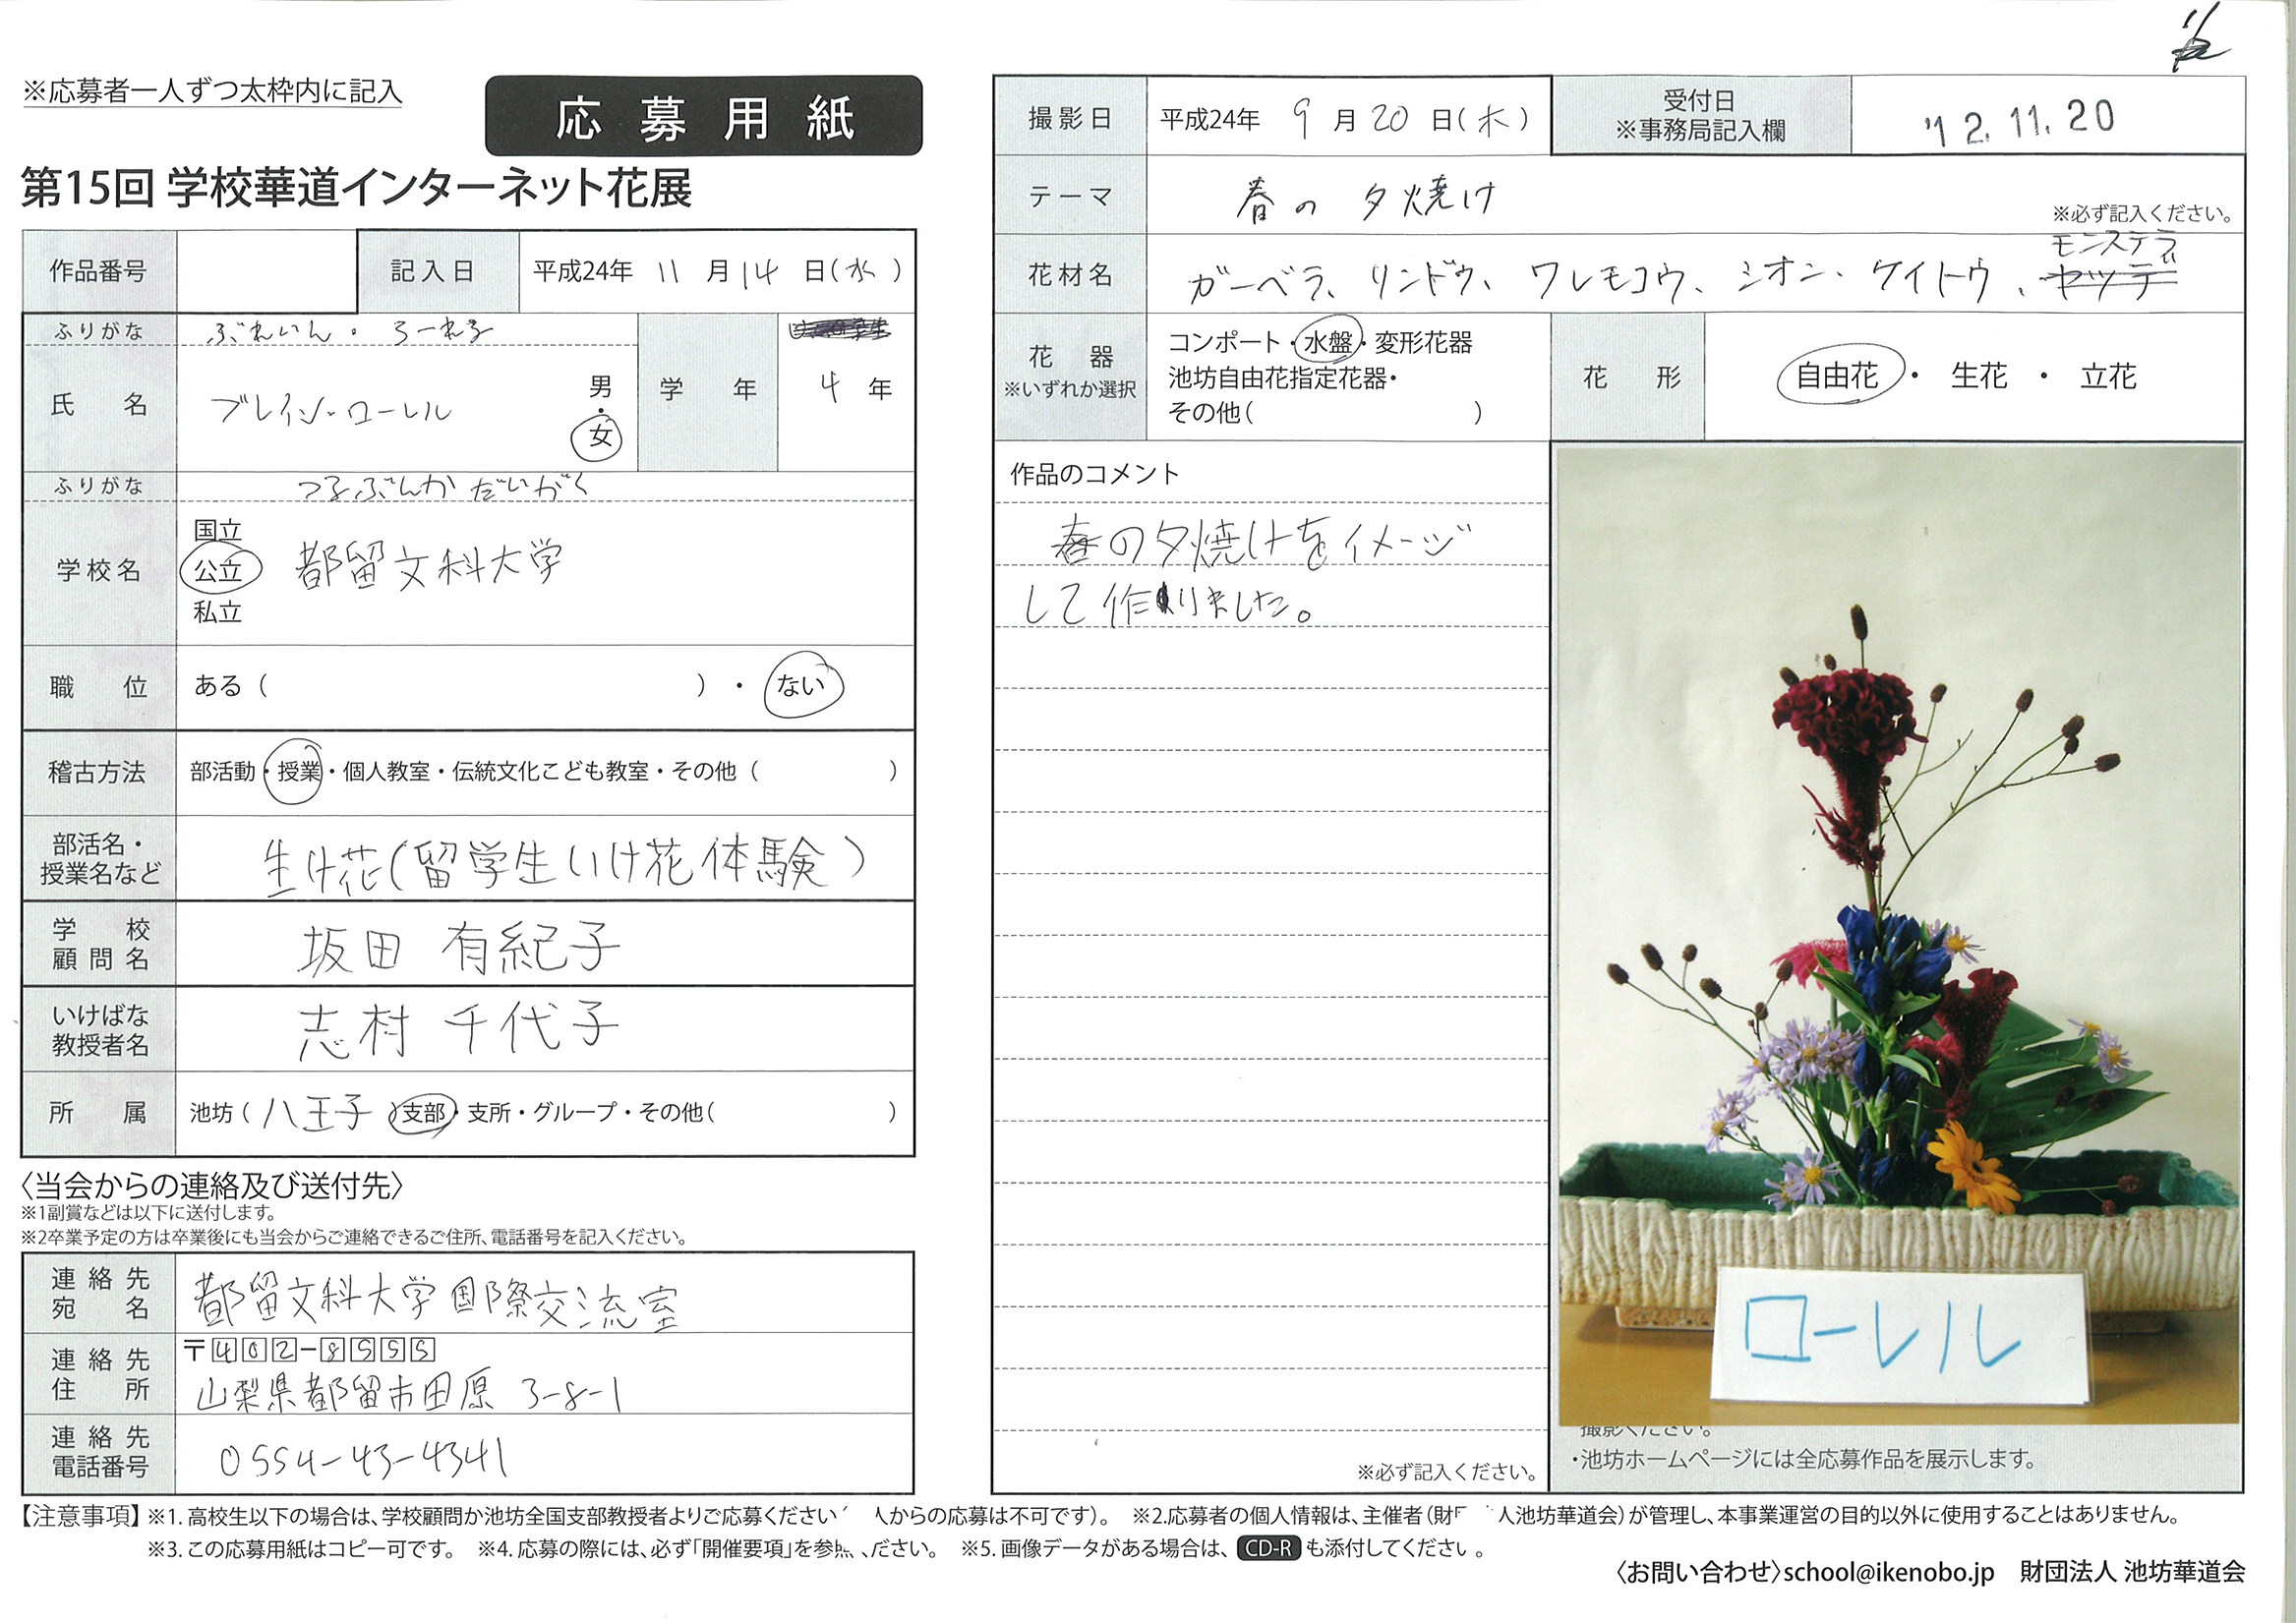 ※応募者一人ずつ太枠内に記入
応募用紙
第15回 学校華道インターネット花展
作品番号
記入日 平成24年 11 月 14 日(水)
ふりがな ぶれいん・ろーれる
氏名 ブレイン・ローレル 男・女
学年 4 年
ふりがな つるぶんかだいがく
学校名 国立 公立 私立 都留文科大学
職位 ある( )・ない
稽古方法 部活動・授業・個人教室・伝統文化こども教室・その他( )
部活名・授業名など 生け花(留学生いけ花体験)
学校顧問名 坂田 有紀子
いけばな教授者名 志村 千代子
所属 池坊(八王子)支部・支所・グループ・その他( )
〈当会からの連絡及び送付先〉
※1副賞などは以下に送付します。
※2卒業予定の方は卒業後にも当会からご連絡できるご住所、電話番号を記入ください。
連絡先宛名 都留文科大学国際交流室
連絡先住所 〒402-8555
山梨県都留市田原 3-8-1
連絡先電話番号 0554-43-4341
撮影日 平成24年 9 月 20 日(木)
受付日 ※事務局記入欄 '12.11.20
テーマ 春の 夕焼け
※必ず記入ください。
花材名 ガーベラ、リンドウ、ワレモコウ、シオン、ケイトウ、モンステラ
花器 ※いずれか選択
コンポート・水盤・変形花器
池坊自由花指定花器・
その他( )
花形 自由花・生花・立花
作品のコメント
春の夕焼けをイメージ
して作りました。
※必ず記入ください。
ローレル
撮影ください。
・池坊ホームページには全応募作品を展示します。
【注意事項】※1. 高校生以下の場合は、学校顧問か池坊全国支部教授者よりご応募ください 人からの応募は不可です)。 ※2.応募者の個人情報は、主催者(財 人池坊華道会)が管理し、本事業運営の目的以外に使用することはありません。
※3. この応募用紙はコピー可です。 ※4. 応募の際には、必ず「開催要項」を参 ください。 ※5. 画像データがある場合は、CD-R も添付してください。
〈お問い合わせ〉school@ikenobo.jp 財団法人 池坊華道会